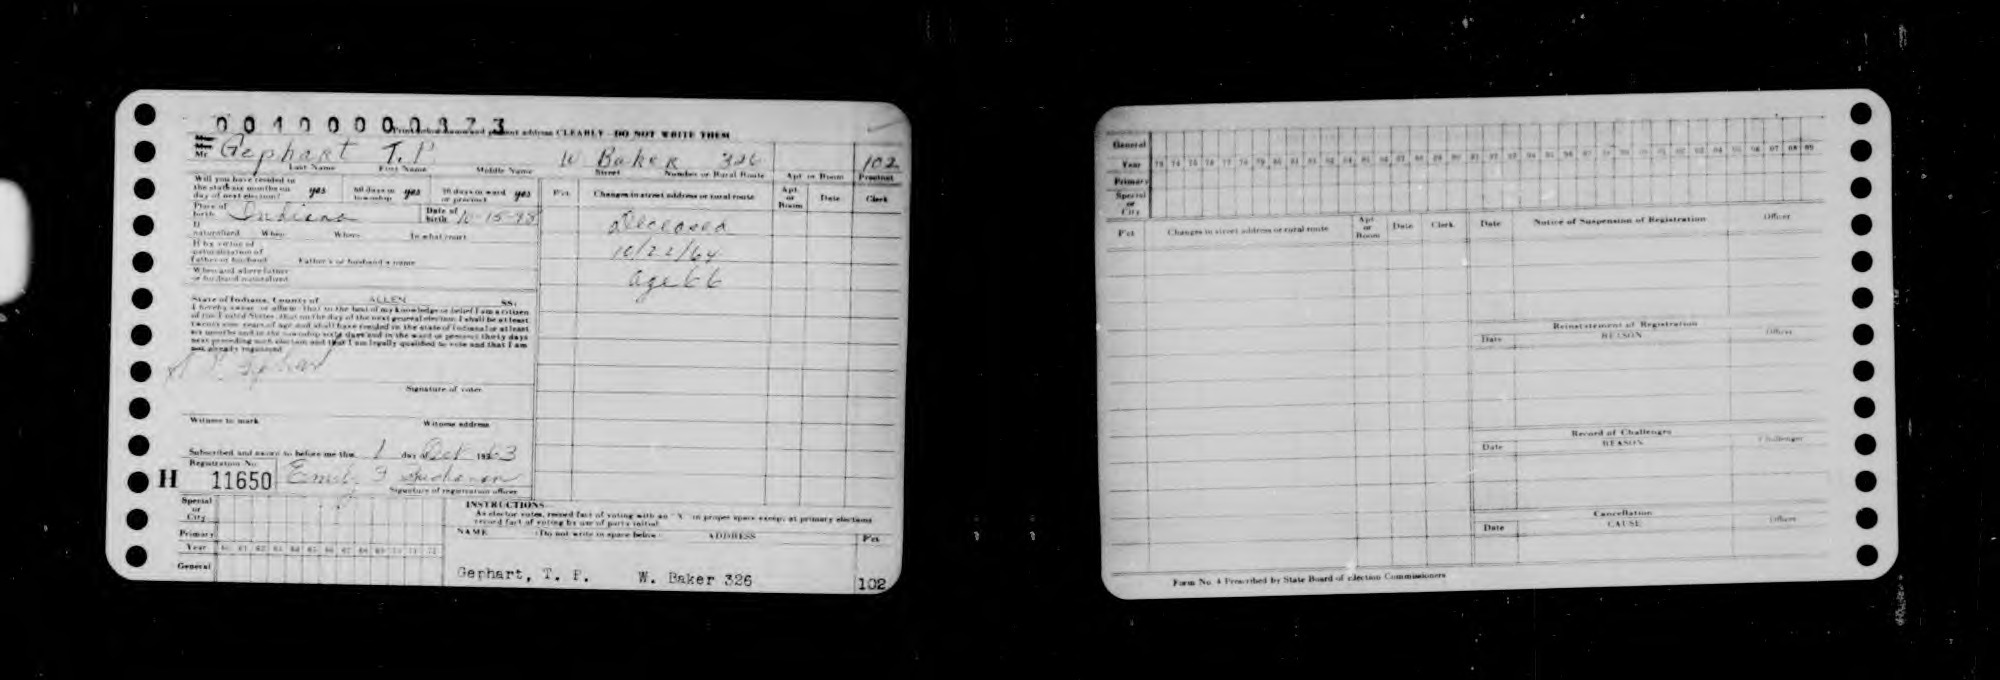 00400000373
Print below name and present address CLEARLY - DO NOT WRITE THEM
Mr. Gephart T. P W Baker 326 102
Last Name First Name Middle Name Street Number or Rural Route Apt or Room Precinct
Will you have resided in
the state six months on yes 60 days in yes 30 days in ward yes
day of next election? township or precinct
P'ct Changes in street address or rural route Apt or Room Date Clerk
Place of birth Indiana Date of birth 10-15-98
Deceased
10/22/64
age 66
If naturalized When Where In what court
If by virtue of
naturalization of
father or husband Father's or husband's name
When and where father
or husband naturalized
State of Indiana, County of ALLEN SS:
I hereby swear or affirm that to the best of my knowledge or belief I am a citizen
of the United States, that on the day of the next general election I shall be at least
twenty-one years of age and shall have resided in the state of Indiana at least
six months and in the township sixty days and in the ward or precinct thirty days
next preceding such election and that I am legally qualified to vote and that I am
not already registered
Gephart
Signature of voter
Witness to mark Witness address
Subscribed and sworn to before me this 1 day of Oct 1963
Registration No.
H 11650 Emily Buchanan
Signature of registration officer
Special or City
Primary
Year 60 61 62 63 64 65 66 67 68 69 70 71 72
General
INSTRUCTIONS
As elector votes, record fact of voting with an "X" in proper space except at primary elections
record fact of voting by use of party initial
NAME (Do not write in space below) ADDRESS P'ct
Gephart, T. P. W. Baker 326 102
General
Year 73 74 75 76 77 78 79 80 81 82 83 84 85 86 87 88 89 90 91 92 93 94 95 96 97 98 99 00 01 02 03 04 05 06 07 08 09
Primary
Special or City
P'ct Changes in street address or rural route Apt or Room Date Clerk
Date Notice of Suspension of Registration Officer
Reinstatement of Registration
Date REASON Officer
Record of Challenges
Date REASON Challenger
Cancellation
Date CAUSE Officer
Form No. 4 Prescribed by State Board of Election Commissioners